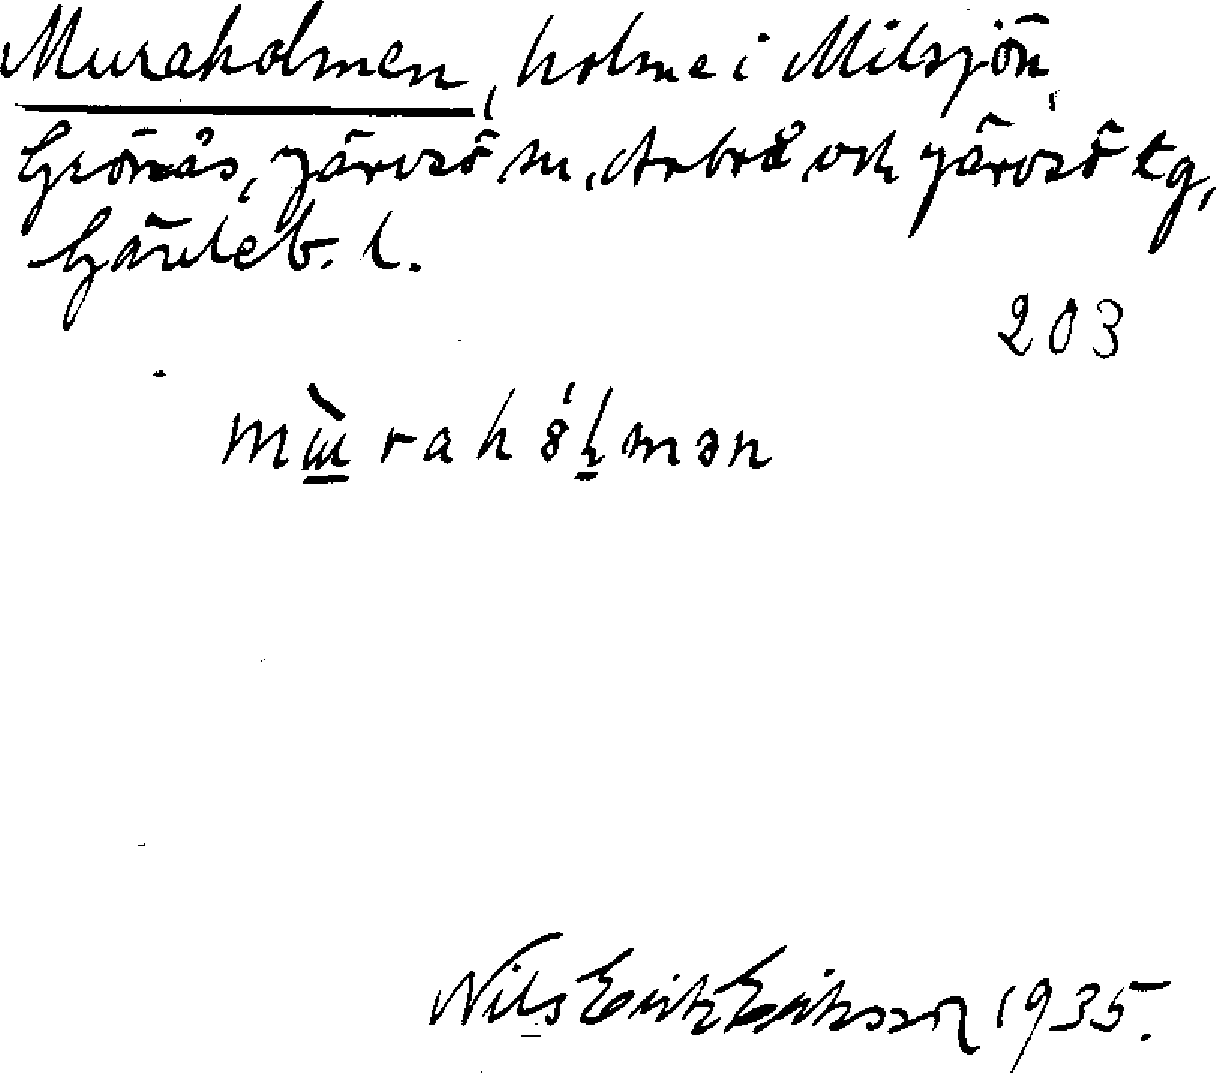 Muraholmen, holme i Milsjön,
Grönås, Järvsö sn, Arbrå och Järvsö tg,
Gävleb. l.
203
Nils Erik Eriksson 1935.